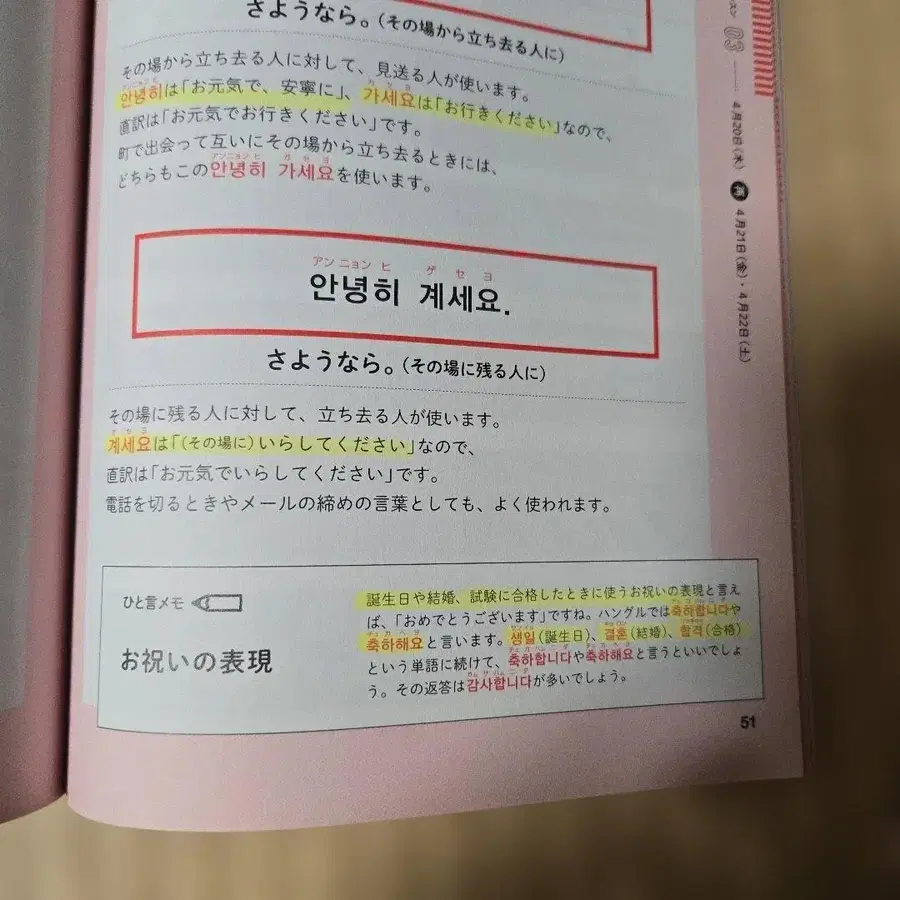 さようなら。(その場から立ち去る人に)
その場から立ち去る人に対して、見送る人が使います。
アンニョンヒ カセヨ
안녕히は「お元気で、安寧に」、가세요は「お行きください」なので、
直訳は「お元気でお行きください」です。
町で出会って互いにその場から立ち去るときには、
アンニョンヒ ガセヨ
どちらもこの안녕히 가세요を使います。
アンニョンヒ ゲセヨ
안녕히 계세요.
さようなら。(その場に残る人に)
その場に残る人に対して、立ち去る人が使います。
ケセヨ
계세요は「(その場に)いらしてください」なので、
直訳は「お元気でいらしてください」です。
電話を切るときやメールの締めの言葉としても、よく使われます。
ひと言メモ
お祝いの表現
誕生日や結婚、試験に合格したときに使うお祝いの表現と言え
ば、「おめでとうございます」ですね。ハングルでは축하합니다や
축하해요と言います。생일(誕生日)、결혼(結婚)、합격(合格)
という単語に続けて、축하합니다や축하해요と言うといいでしょ
う。その返答は감사합니다が多いでしょう。
51
スン 03
4月20日(木) 再 4月21日(金)・4月22日(土)